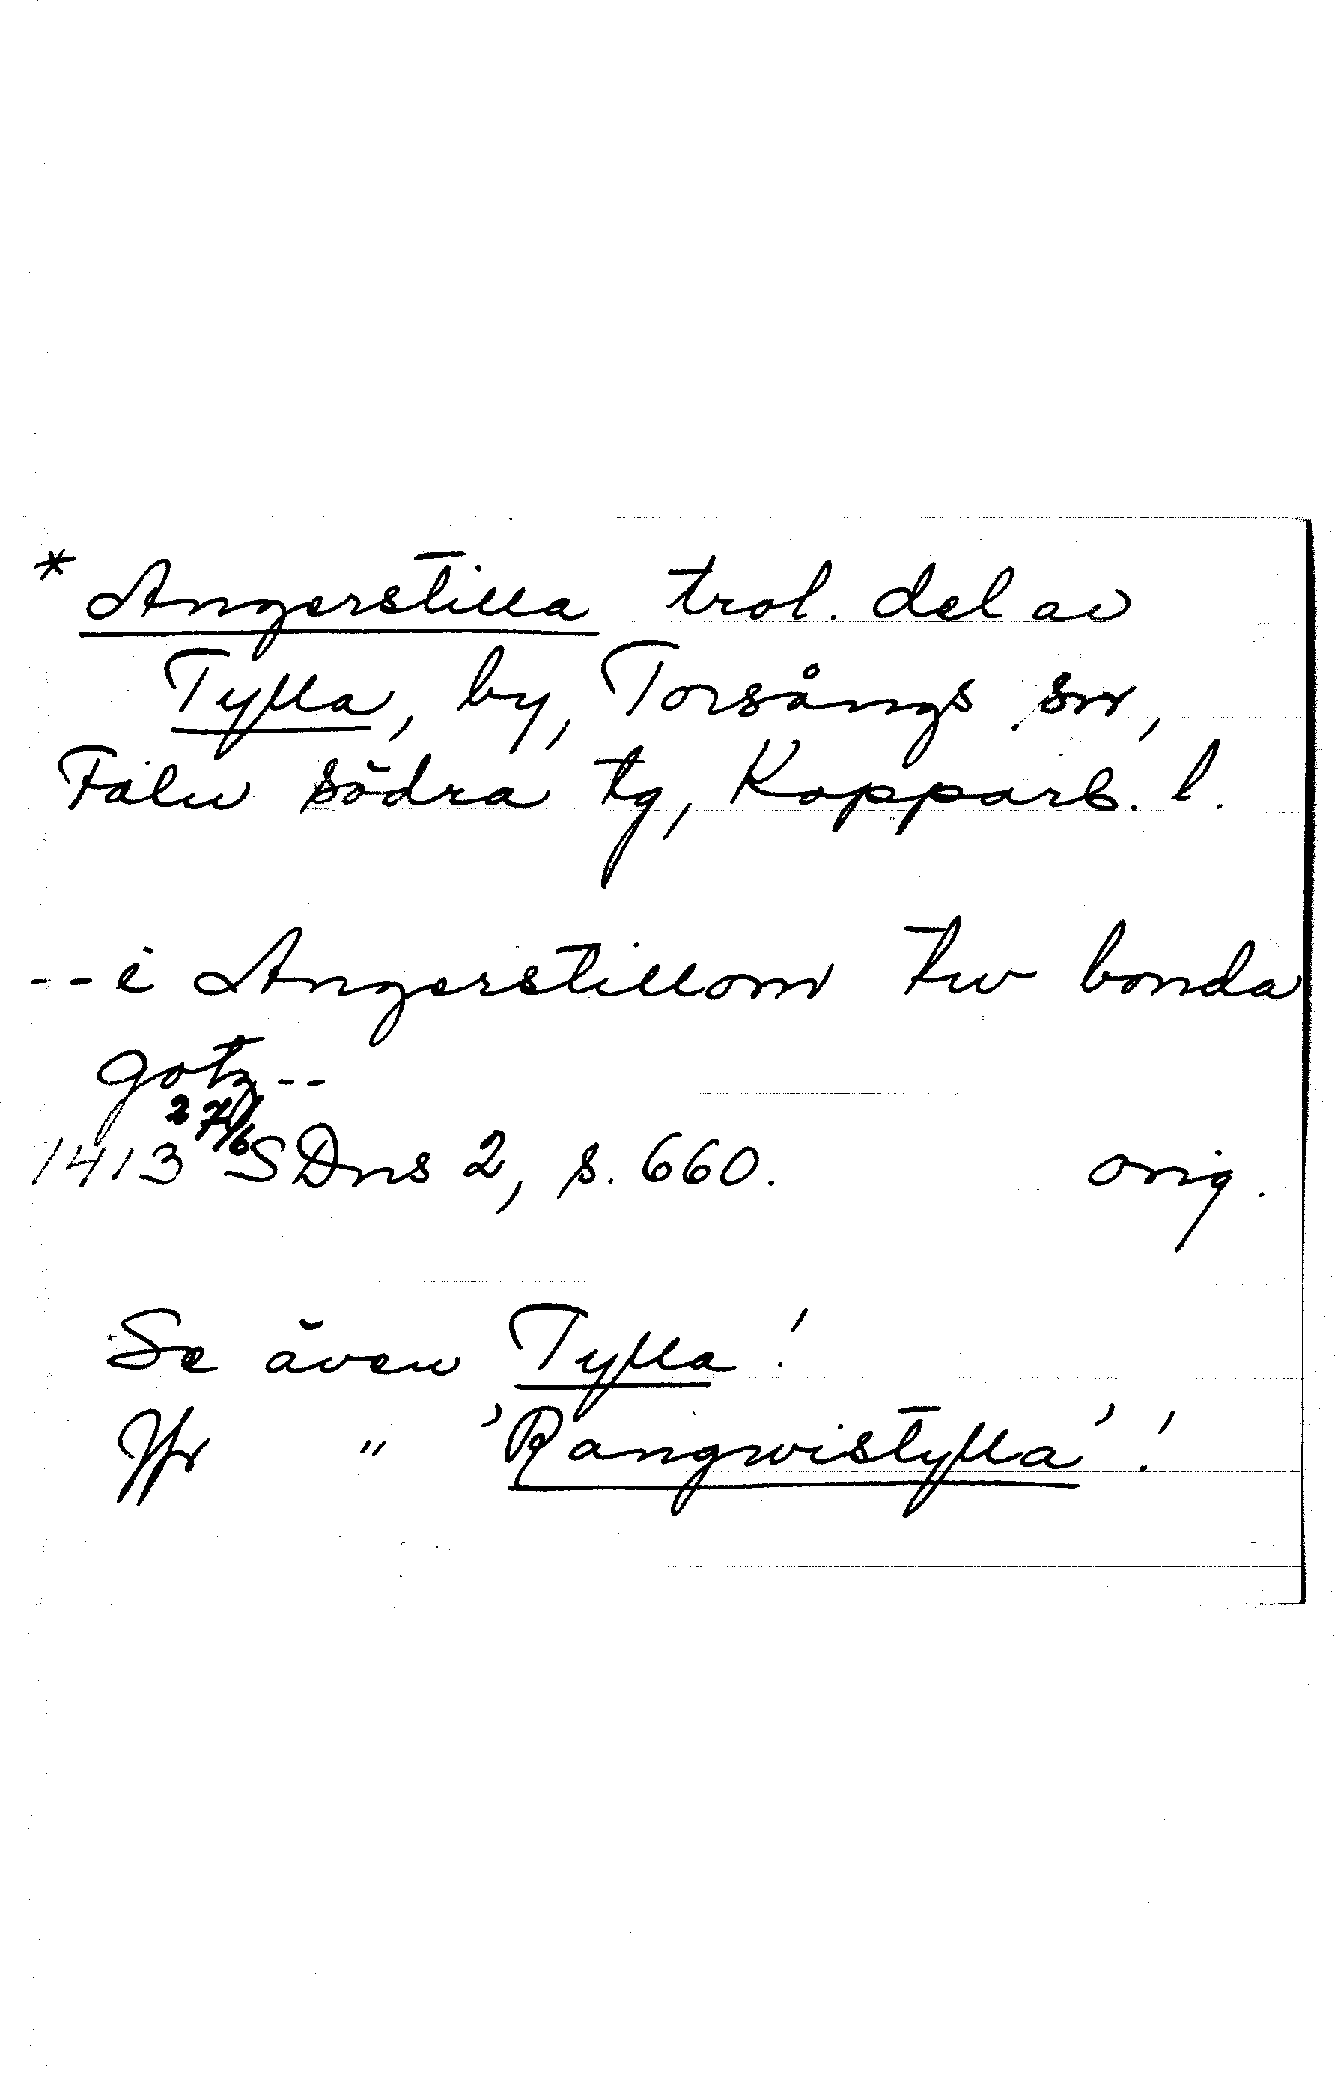 * Angerstilla trol. del av
Tylla, by, Torsångs sn,
Falu södra tg, Kopparb. l.
--i Angerstillom tw bonda
gotz--
1413 27/6 SDns 2, s. 660. orig.
Se även Tylla!
Jfr " 'Rangwistylla'!